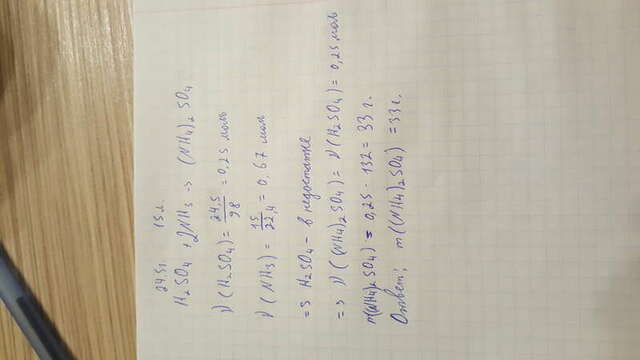 24,5г. 15 л.
H₂SO₄ + 2NH₃ → (NH₄)₂SO₄
ν(H₂SO₄) = 24,5/98 = 0,25 моль
ν(NH₃) = 15/22,4 = 0,67 моль
=> H₂SO₄ - в недостатке
=> ν((NH₄)₂SO₄) = ν(H₂SO₄) = 0,25 моль
m((NH₄)₂SO₄) = 0,25 · 132 = 33 г.
Ответ: m((NH₄)₂SO₄) = 33 г.